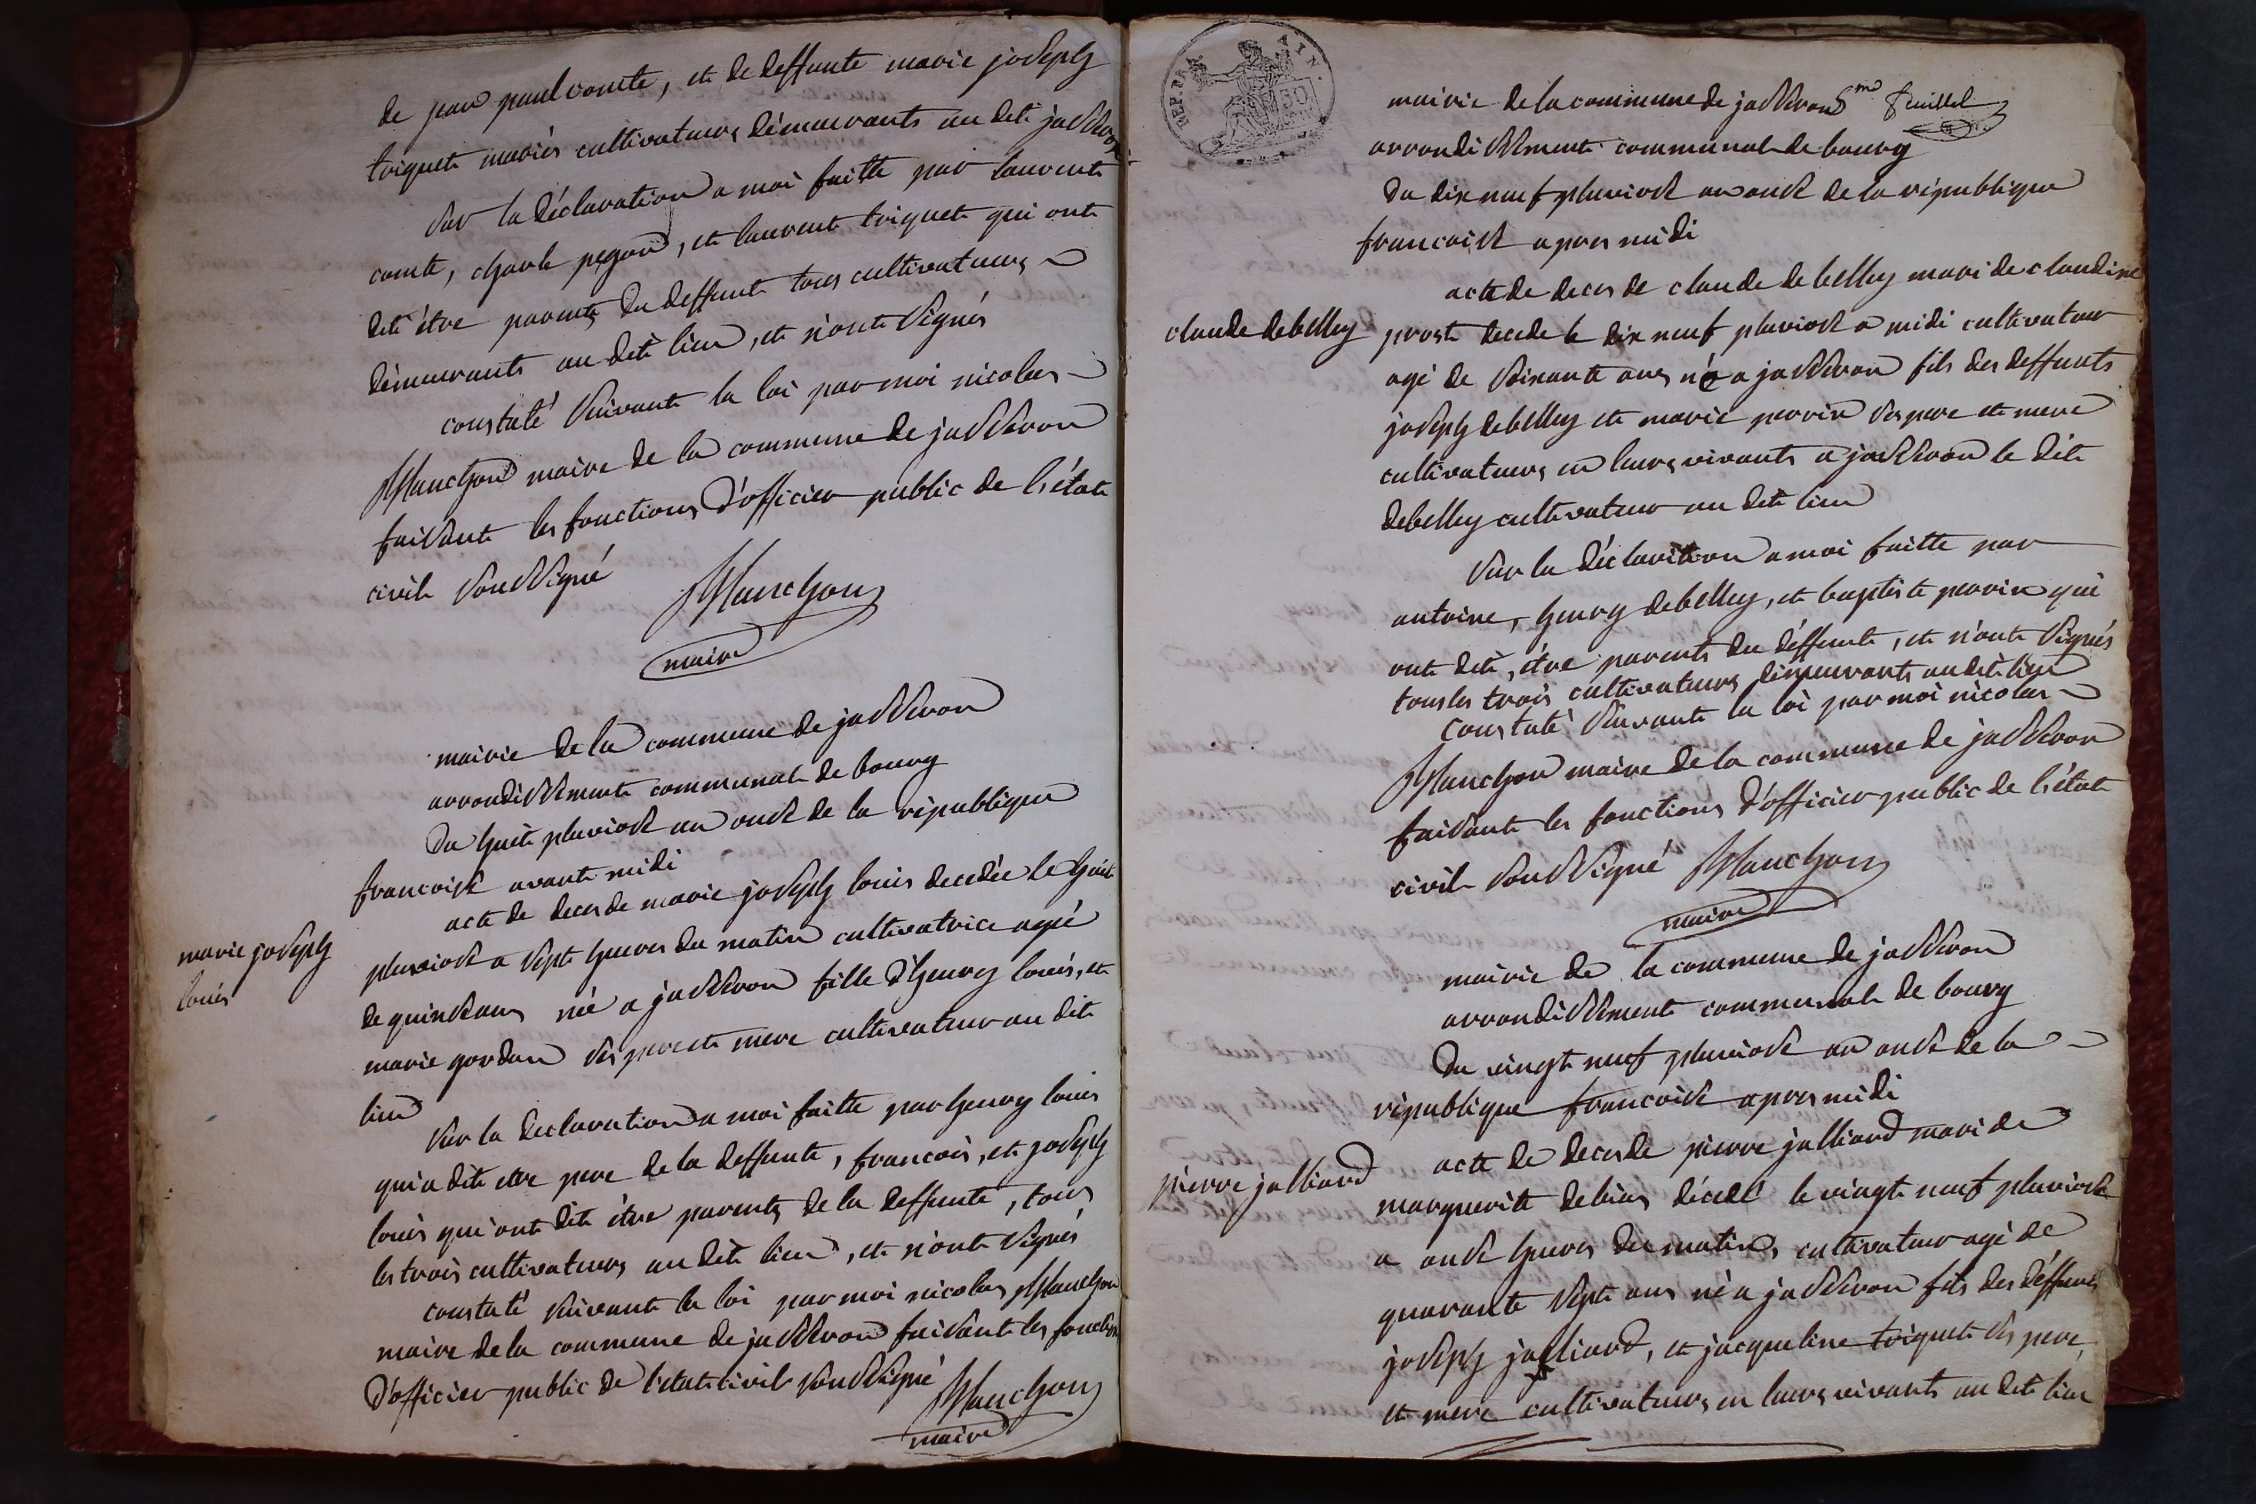 de jean paul comte, et de deffunte marie joseph
triquet mariés cultivateurs démeurants au dit jasseron
sur la déclaration a moi faitte par laurent
comte, charle pegon, et laurent triquet qui ont
dit être parents du deffunt tous cultivateurs
démeurants au dit lieu, et n'ont signés
constaté suivant la loi par moi nicolas
Manchon maire de la commune de jasseron
faisant les fonctions d'officier public de l'état
civil soussigné
Manchon
maire
mairie de la commune de jasseron
arrondissement communal de bourg
du huit pluviose an onse de la république
francoise avant midi
marie joseph
louis
acte de deces de marie joseph louis decedée le huit
pluviose a sept heures du matin cultivatrice agée
de quinse ans née a jasseron fille d'henry louis, et
marie gordan ses pere et mere cultivateur au dit
lieu
sur la declaration a moi faitte par henry louis
qui a dit etre pere de la deffunte, francois, et joseph
louis qui ont dit être parents de la deffunte, tous
les trois cultivateurs au dit lieu, et n'ont signés
constaté suivant la loi par moi nicolas Manchon
maire de la commune de jasseron faisant les fonctions
d'officier public de l'etat civil soussigné Manchon
maire
REP. FRA. AIN.
mairie de la commune de jasseron 5me feuillet
arrondissement communal de bourg
du dix neuf pluviose an onse de la république
francoise apres midi
claude debelley
acte de deces de claude debelley mari de claudine
prost decede le dix neuf pluviose a midi cultivateur
agé de soixante ans né a jasseron fils des deffunts
joseph debelley et marie perrin ses pere et mere
cultivateurs en leurs vivants a jasseron le dit
debelley cultivateur au dit lieu
sur la déclaration a moi faitte par
antoine, henry debelley, et baptiste perrin qui
ont dit, être parents du déffunt, et n'ont signés
tous les trois cultivateurs démeurants au dit lieu
constaté suivant la loi par moi nicolas
Manchon maire de la commune de jasseron
faisant les fonctions d'officier public de l'état
civil soussigné Manchon
maire
mairie de la commune de jasseron
arrondissement communal de bourg
du vingt neuf pluviose an onse de la
république francoise apres midi
pierre jalliard
acte de deces de pierre jalliard mari de
marguerite debias décedé le vingt neuf pluviose
a onse heures du matin, cultivateur agé de
quarante sept ans né a jasseron fils des déffunts
joseph jalliard, et jacqueline triquet ses pere,
et mere cultivateurs en leurs vivants au dit lieu